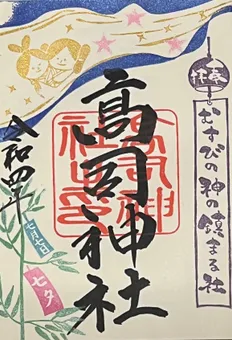 奉拝
むすびの神の鎮まる社
高司神社
令和四年
七月七日
七夕